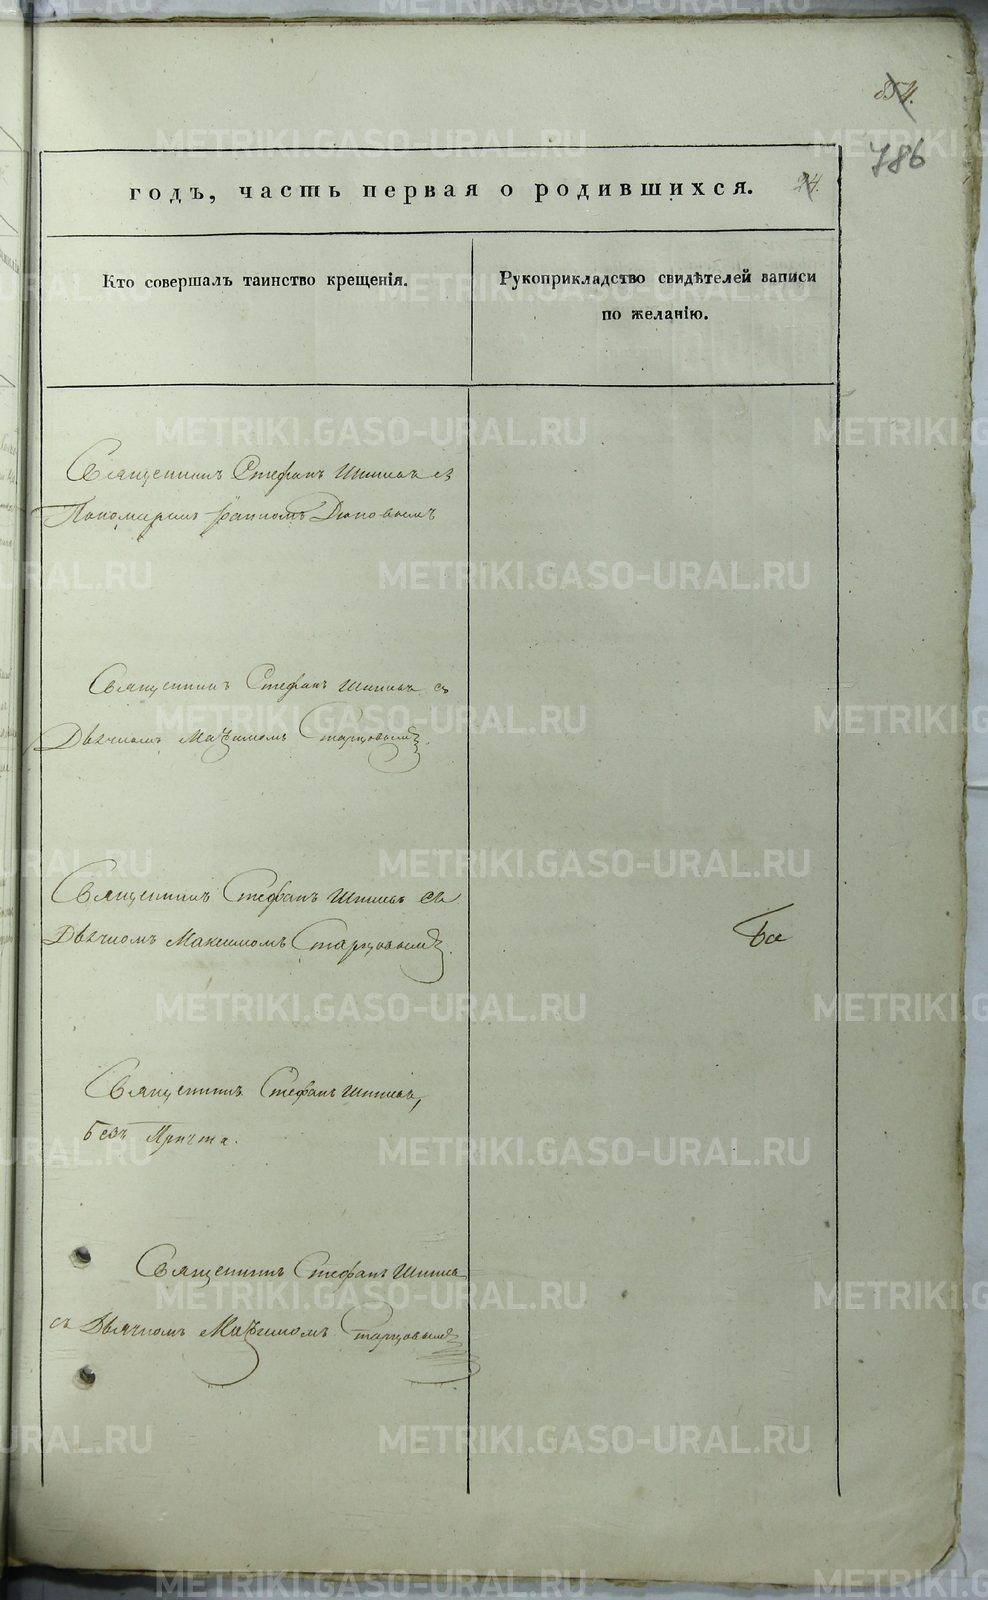 854.
786
годъ, часть первая о родившихся. 24.
Кто совершалъ таинство крещенія.
Рукоприкладство свидѣтелей записи
по желанію.
Священникъ Стефанъ съ
Пономаремъ Поповымъ
Священникъ Стефанъ съ
Дьячкомъ Максимомъ Старцовымъ.
Священникъ Стефанъ съ
Дьячкомъ Максимомъ Старцовымъ.
Священникъ Стефанъ
безъ Причта.
Священникъ Стефанъ
съ Дьячкомъ Максимомъ Старцовымъ
METRIKI.GASO-URAL.RU